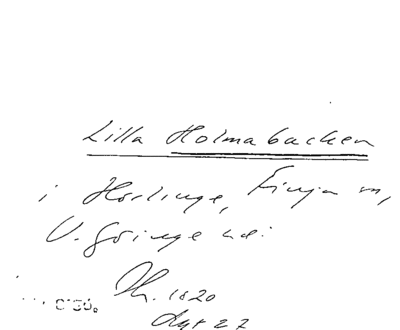 Lilla Holmabacken
i Horlinge, Finja sn,
V. Göinge hd:
Th. 1820
Akt 27